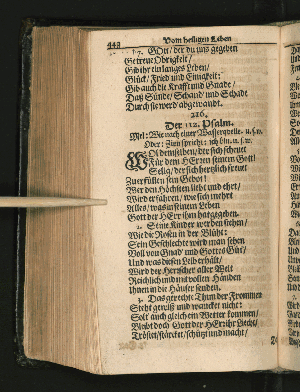 442 Vom heiligen Leben
7. Gott/ der du uns gegeben
Getreue Obrigkeit/
Gib ihr ein langes Leben/
Glück/ Fried und Einigkeit:
Gib auch die Krafft und Gnade/
Daß Sünde/ Schand' und Schade
Durch sie werd abgewandt.
216.
Der 112. Psalm.
Mel: Wie nach einer Wasserquelle. u.s.w.
Oder: Zion spricht: ich bin. u.s.w.
Wol dem selben/ der sich scheuet
Für dem HErren seinem Gott!
Selig/ der sich hertzlich freuet
Zu erfüllen sein Gebot!
Wer den Höchsten liebt und ehrt/
Wird erfahren/ wie sich mehrt
Alles/ was in seinem Leben
Gott der HErr ihm hat gegeben.
2. Seine Kinder werden stehen/
Wie die Rosen in der Blüht:
Sein Geschlecht wird man sehen
Voll von Gnad' und Gottes Güt/
Und was diesen Leib erhält/
Wird der Herrscher aller Welt
Reichlich und mit vollen Händen
Ihnen in die Häuser senden.
3. Das gerechte Thun der Frommen
Steht gewiß und wancket nicht:
Solt auch gleich ein Wetter kommen/
Bleibt doch Gott der HErr ihr Liecht/
Tröstet/ stärcket/ schützt und macht/